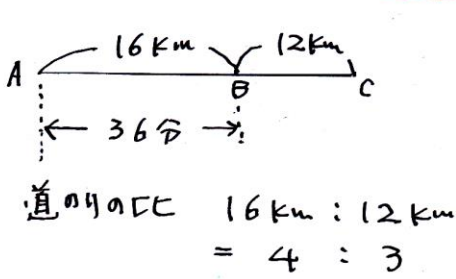 16km 12km
A B C
36分
道のりの比 16km : 12km
= 4 : 3